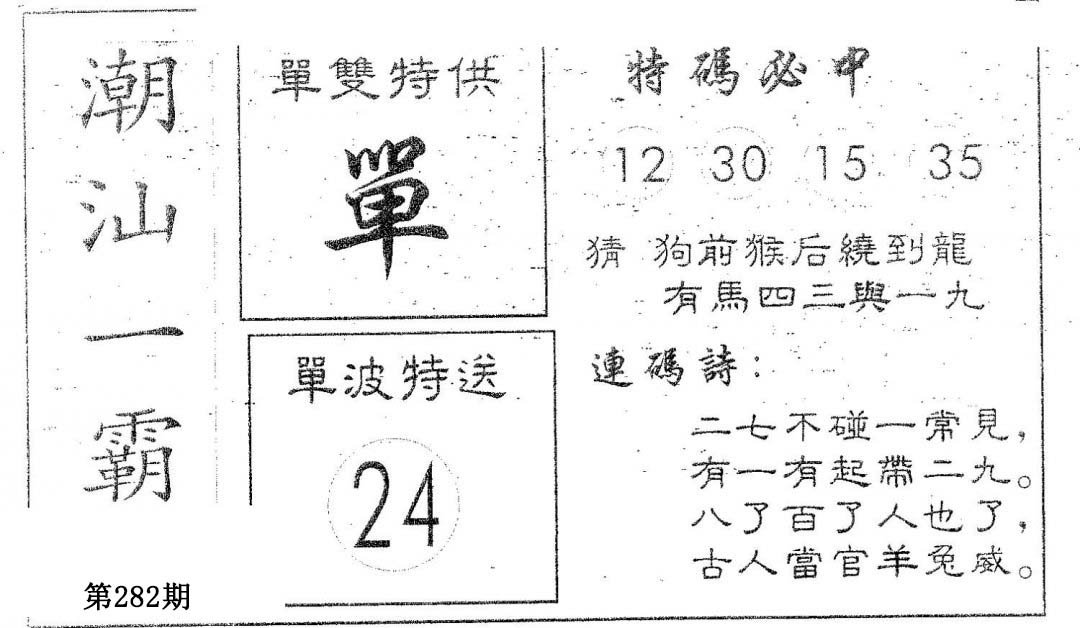 潮汕一霸
第282期
單雙特供
單
單波特送
24
特碼必中
12 30 15 35
猜 狗前猴后繞到龍
有馬四三與一九
連碼詩:
二七不碰一常見,
有一有起帶二九。
八了百了人也了,
古人當官羊兔威。